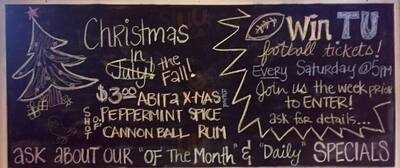 Christmas
in
July! the
Fall!
$3.00 ABITA X-MAS
SHOT OF
PEPPERMINT SPICE
CANNON BALL RUM
Win TU
football tickets!
Every Saturday @ 5PM
Join us the week prior
to ENTER!
ask for details...
ASK ABOUT OUR "OF The MONTH" & "Daily" SPECIALS